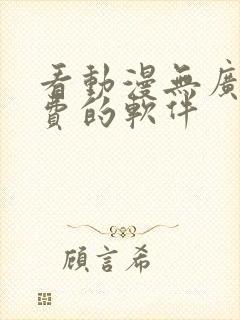 看動漫無廣
費的軟件
顧言希